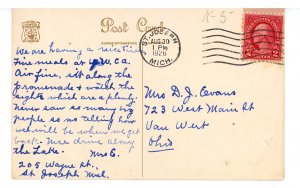 K-5
Post Card
CORRESPONDENCE
ST. JOSEPH
AUG 30
1 PM
1926
MICH.
We are having a
Fine meals at Y.W.C.A.
Air fine, sit along the
promenade & watch the
sights which are a plenty.
Never saw so many big
people so no telling how
we will be when we get
back. Nice drive along
the Lake. Mrs C.
205 Wayne St.
St Joseph Mich.
Mrs D. J. Evans
723 West Main St
Van Wert
Ohio